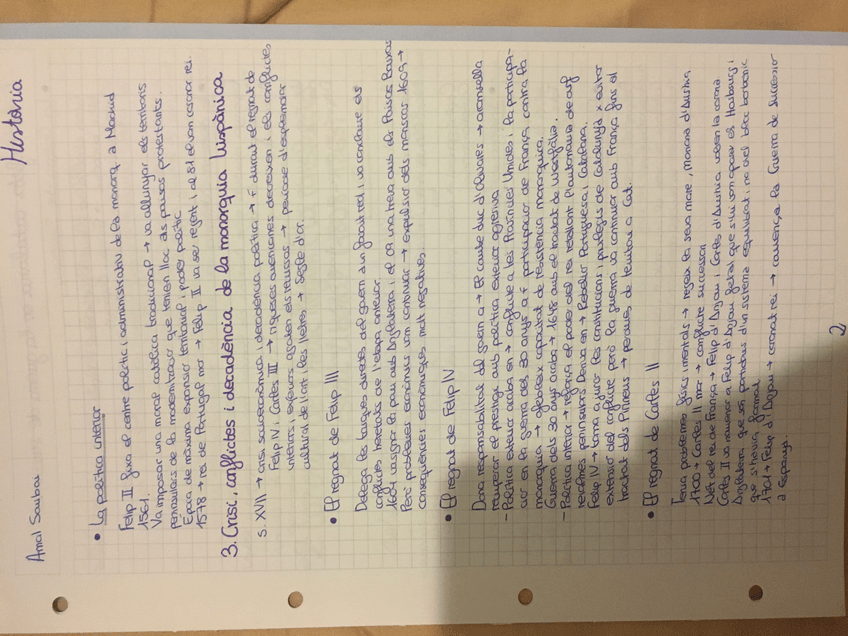 Història
Amal
• La política interior
Felip II fixa el centre polític i administratiu de la monarq. a Madrid
1561.
Va imposar una moral catòlica tradicional → va allunyar els territoris
peninsulars de la modernització que tenien lloc als països protestants.
Època de màxima expansió territorial i poder polític
1578 → rei de Portugal mor → Felip II va ser regent i al 81 el van coronar rei.
3. Crisi, conflictes i decadència de la monarquia hispànica
s. XVII → crisi socioeconòmica i decadència política → + durant el regnat de
Felip IV i Carles III → riqueses americanes decreixen i els conflictes
interiors i exteriors agoten els recursos → període d'esplendor
cultural de l'art i les lletres → Segle d'or.
• El regnat de Felip III
Delega les tasques directes del govern a un favorit reial i va concloure els
conflictes heretats de l'etapa anterior
1604 va signar la pau amb Anglaterra i al 09 una treva amb els Països Baixos
Però problemes econòmics van continuar → expulsió dels moriscos 1609 →
conseqüències econòmiques molt negatives.
• El regnat de Felip IV
Dona responsabilitat del govern a → El comte duc d'Olivares → aconsella
recuperar el prestigi amb política exterior agressiva
- Política exterior acaba en → conflicte a les Províncies Unides i la participa-
ció en la guerra del 30 anys a + participació de França contra la
monarquia → afebleix capacitat de resistència monàrquica.
Guerra dels 30 anys acaba → 1648 amb el tractat de Westfàlia.
- Política interior → reforça el poder del rei retallant l'autonomia de
reialmes peninsulars. Deriva en → Rebel·lió Portuguesa i Catalana.
Felip IV → torna a jurar les constitucions i privilegis de Catalunya x evitar
extensió del conflicte però la guerra va continuar amb França fins al
tractat dels Pirineus → pèrdues de territori a Cat.
• El regnat de Carles II
Tenia problemes físics i mentals → regeix la seva mare, Mariana d'Àustria
1700 → Carles II mor → conflicte successori
Nét del rei de França → Felip d'Anjou i Carles d'Àustria volien la corona
Carles II va nomenar a Felip d'Anjou però s'hi van oposar els Habsburg i
Anglaterra que són partidaris d'un sistema equilibrat i no pel bloc borbònic
que s'havia format.
1701 → Felip d'Anjou → coronat rei → comença la Guerra de Successió
a Espanya.
2